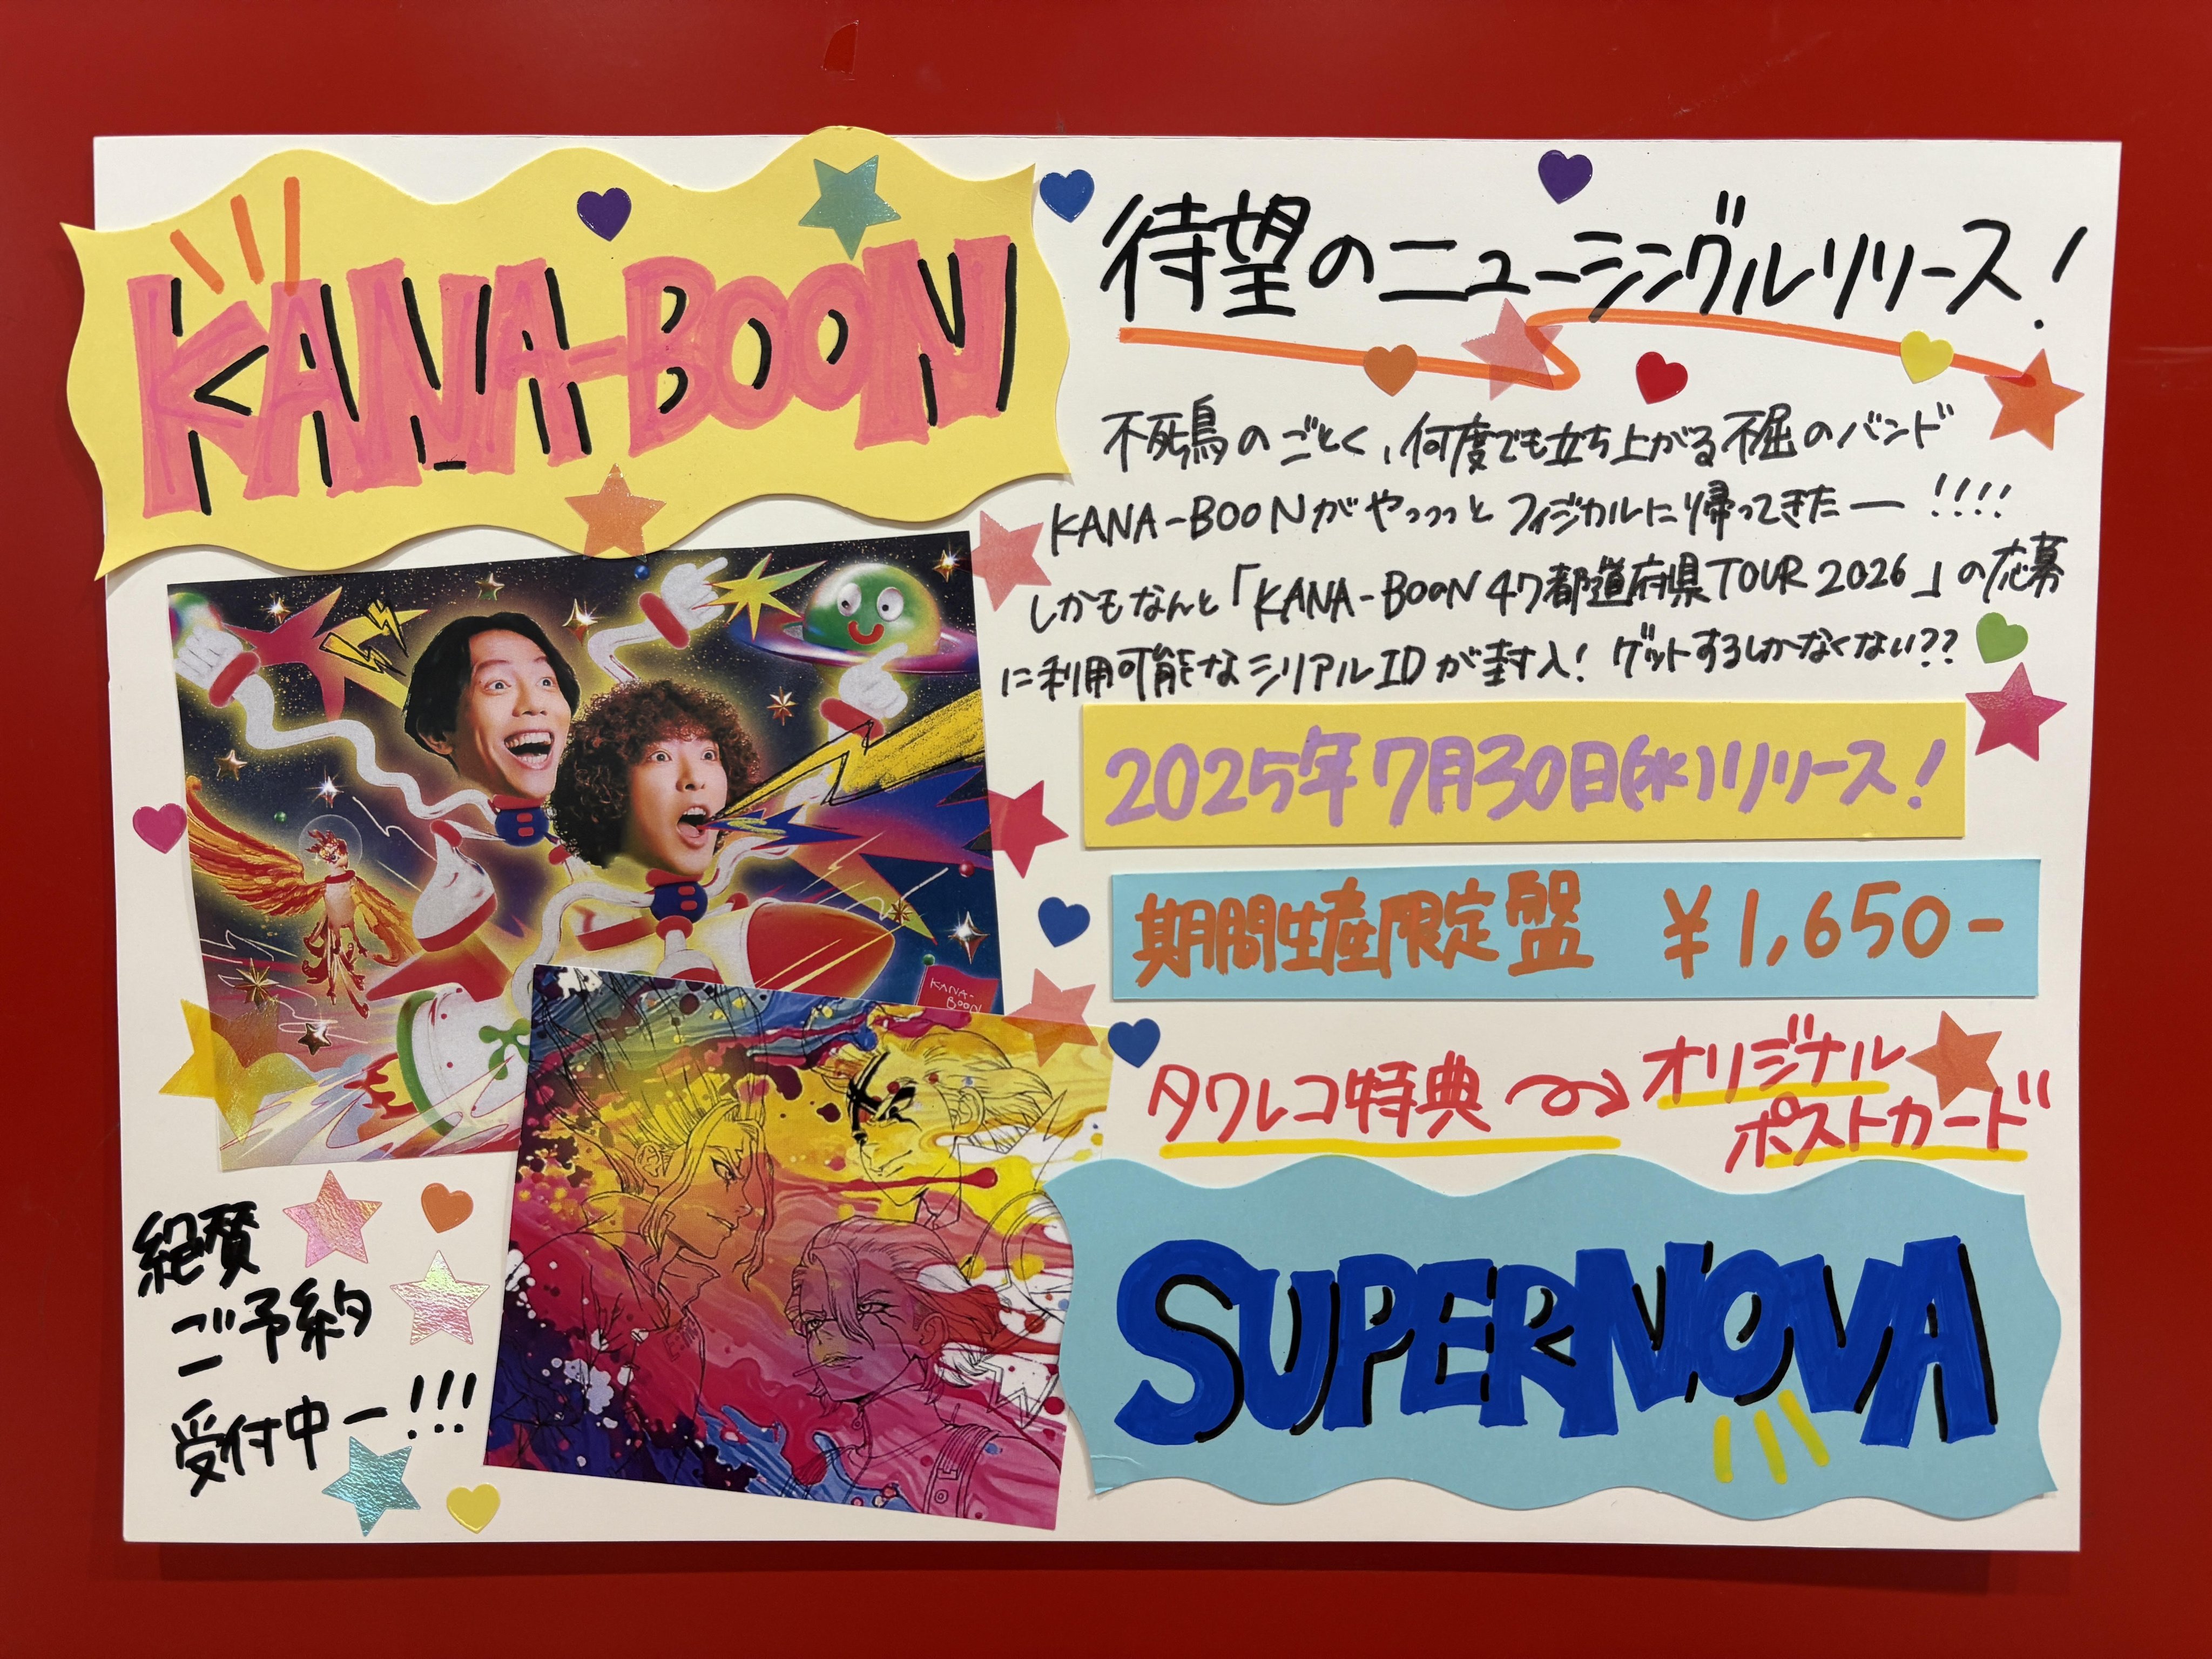 KANA-BOON
待望のニューシングルリリース!
不死鳥のごとく、何度でも立ち上がる不屈のバンド
KANA-BOONがやっっっとフィジカルに帰ってきたー!!!!
しかもなんと「KANA-BOON 47都道府県TOUR 2026」の応募
に利用可能なシリアルIDが封入! ゲットするしかなくない??
2025年7月30日(水)リリース!
期間生産限定盤 ¥1,650-
タワレコ特典
オリジナル
ポストカード
KANA-
BOON
絶賛
ご予約
受付中ー!!!
SUPERNOVA